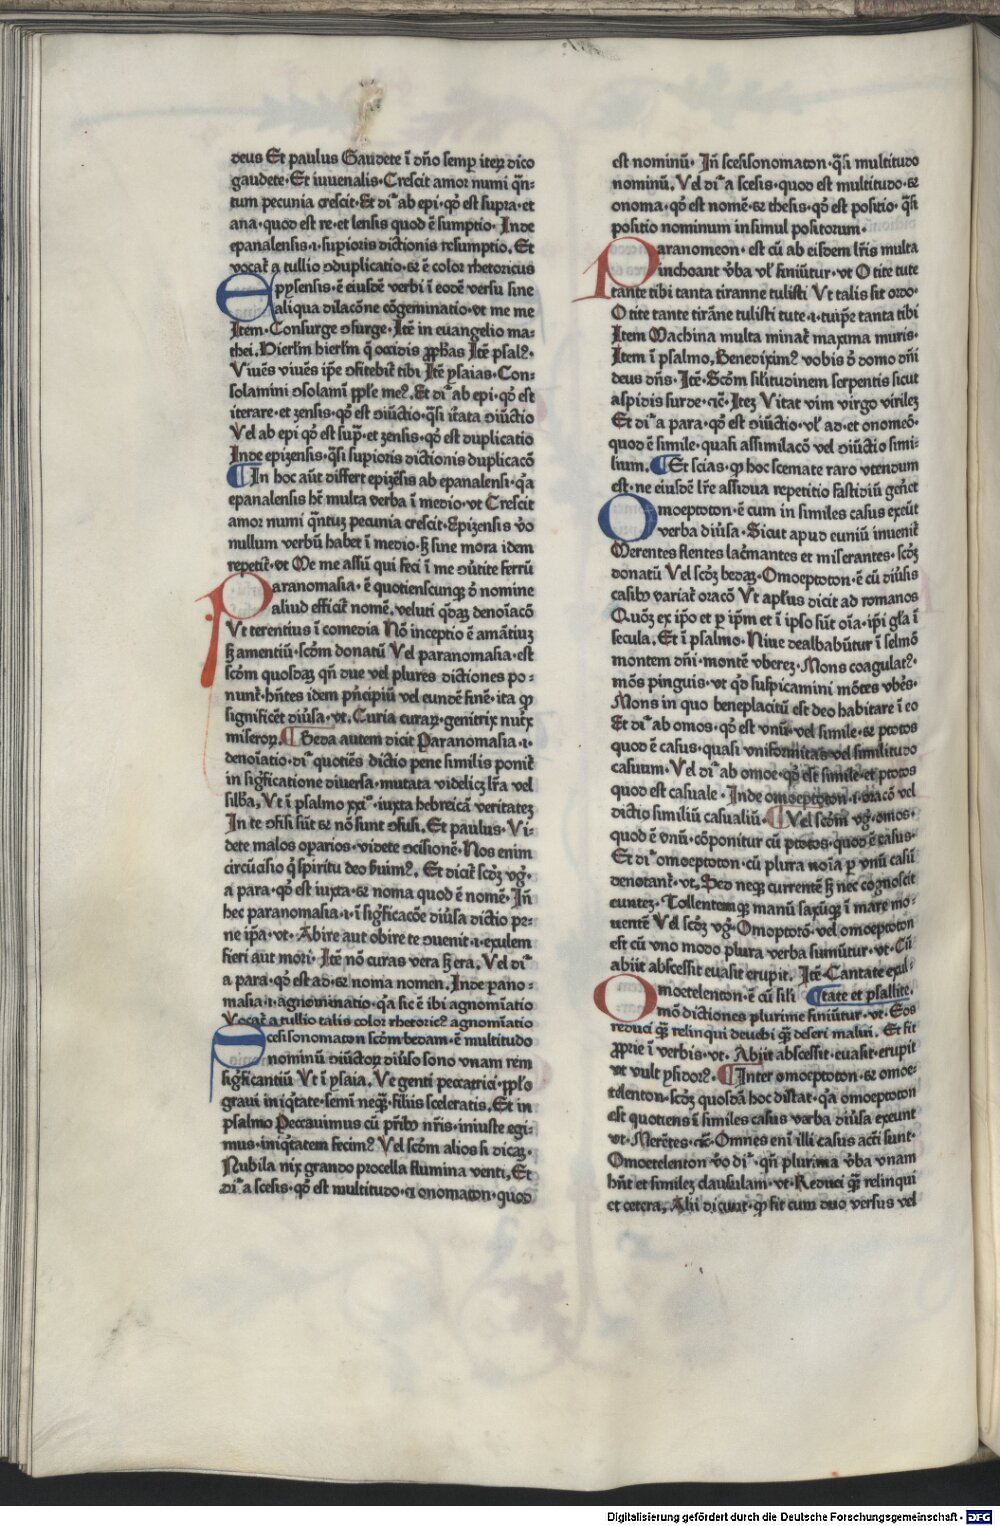 deus Et paulus Gaudete ī dño semꝑ iteꝝ dico
gaudete · Et iuuenalis · Crescit amor numi q̄n⸗
tum pecunia crescit · Et di͛ ab epi · qō est supra · et
ana · quod est re · et lensis quod ē sumptio · Inde
epanalensis · ı · supioris dictionis resumptio · Et
vocat̃ a tullio ɔduplicatio · ꝛ ē color rhetoricus
Epysensis · ē eiusdē verbi ī eodē versu sine
aliqua dilacōne cōgeminatio · vt me me
Item · Consurge ɔsurge · Itē in euangelio ma⸗
thei . Hierl̄m hierl̄m q̄ occidis ꝓphas Itē psal̄ꝰ ·
Viuēs viuēs ip̄e ɔfitebit̃ tibi Itē ysaias · Con⸗
solamini ɔsolamī ppl̄e meꝰ . Et di͛ ab epi · qō est
iterare · et zensis · qō est diūctio · q̄si itata diūctio
Vel ab epi qō est sup̄ · et zensis · qō est duplicatio
Inde epizensis · q̄si supioris dictionis duplicacō
¶ In hoc aūt differt epizēsis ab epanalensi · q̄a
epanalensis h̄t multa verba ī medio · vt Crescit
amor numi q̄ntuꝫ pecunia crescit · Epizensis v̄o
nullum verbū habet ī medio · ſꝫ sine mora idem
repetit̃ · vt Me me assū qui feci ī me ɔūtite ferrū
Paranomasia · ē quotienscunqꝫ ō nomine
aliud efficit̃ nomē . veluti q̄daꝫ denoīacō
Vt terentius ī comedia Nō inceptio ē amātiuꝫ
ſꝫ amentiū · scōm donatū Vel paranomasia · est
scōm quosdaꝫ qñ due vel plures dictiones po⸗
nunt̃ · hñtes idem pñcipiū vel eundē finē · ita ꝙ
significēt diūsa · vt . Curia curaꝝ · genitrix nutx̃
miseroꝝ . ¶ Beda autem dicit Paranomasia · ı ·
denoīatio · di͛ quotiēs dictio pene similis ponit̃
in sig̃ficatione diuersa · mutata videlicꝫ lr̄a vel
silb̄a , Vt ī psalmo xxi͛ · iuxta hebreicā veritateꝫ
In te ɔfisi sūt ꝛ nō sunt ɔfusi . Et paulus · Vi⸗
dete malos oparios · videte ɔcisionē · Nos enim
circūcisio q̄ spiritu deo ſuimꝰ . Et dicit̃ scōꝫ vḡ ·
a para · qō est iuxta · ꝛ noma quod ē nomē · Iñ
hec paranomasia · ı · ī sig̃ficacōe diūsa dictio pe⸗
ne ip̄a · vt · Abire aut obire te ɔuenit · ı · exulem
fieri aut mori · Itē nō curas vera ſꝫ era . Vel di͛
a para · qō est ad · ꝛ noma nomen . Inde pano⸗
masia · ı · agnominatio · q̄a sic ē ibi agnomīatio
Vocat̃ a tullio talis color rhetoricꝰ agnomīatio
Scesisonomaton scōm bedam · ē multitudo
nominū diūctoꝝ diūso sono vnam rem
sig̃ficantiū Vt ī ysaia . Ve genti peccatrici · ppl̄o
graui iniq̄tate · semī neq̄ꝫ · filiis sceleratis . Et in
psalmo Peccauimus cū prībꝰ nr̄is · iniuste egi⸗
mus · iniq̄tatem fecimꝰ Vel scōm alios si dicaꝫ ·
Nubila nix grando procella flumina venti , Et
di͛ a scesis · qō est multitudo · ꝛ onomaton · quod
est nominū · Iñ scesisonomaton · q̄si multitudo
nominū , Vel di͛ a scesis · quod est multitudo · ꝛ
onoma · qō est nomē · ꝛ thesis · qō est positio · q̄si
positio nominum insimul positorum ·
Paranomeon · est cū ab eisdem lr̄is multa
inchoant v̄ba vl̄ finiūtur · vt O tite tute
tante tibi tanta tiranne tulisti Vt talis sit ordo ·
O tite tante tirāne tulisti tute · ı · tuip̄e tanta tibi
Item Machina multa minat̃ maxima muris ·
Item ī psalmo , Benediximꝰ vobis ō domo dñi
deus dñs · Itē · Scōm sil̄itudinem serpentis sicut
aspidis surde · ꝛc̄ · Iteꝫ Vitat vim virgo virileꝫ
Et di͛ a para · qō est diūctio · vl̄ ad · et onomeō ·
quod ē simile · quasi assimilacō vel diūctio simi⸗
lium . ¶ Et scias · ꝙ hoc scemate raro vtendum
est · ne eiusdē lr̄e assidua repetitio fastidiū gen̄et
Omoeptoton · ē cum in similes casus exeūt
verba diūsa · Sicut apud enniū inuenit̃
Merentes flentes lac̃mantes et miserantes · scōꝫ
donatū Vel scōꝫ bedaꝫ · Omoeptoton · ē cū diūsis
casibꝰ variat̃ oracō Vt apl̄us dicit ad romanos
Quōꝫ ex ip̄o et p ip̄m et ī ipso sūt oīa · ip̄i gl̄a ī
secula . Et ī psalmo · Niue dealbabūtur ī selmō
montem dñi · montē vbereꝫ · Mons coagulatꝰ ·
mōs pinguis · vt q̄d suspicamini mōtes vb̄es ·
Mons in quo beneplacitū est deo habitare ī eo
Et di͛ ab omos · qō est vnū · vel simile · ꝛ ptotos
quod ē casus · quasi vniformitas vel similitudo
casuum · Vel di͛ ab omoe · qō est simile · et ptotos
quod est casuale · Inde omoeptoton · ı · oracō vel
dictio similiū casualiū · ¶ Vel scōm vḡ · omos ·
quod ē vnū · cōponitur cū ptotos · quod ē casus ·
Et di͛ omoeptoton · cū plura noīa p vnū casū
denotant̃ · vt , Sed neqꝫ currentē ſꝫ nec cognoscit
euntez · Tollentemqꝫ manū saxūqꝫ ī mare mo⸗
uentē Vel scōꝫ vḡ · Omoptotō · vel omoeptoton
est cū vno modo plura verba sumūtur · vt · Cū
abiit abscessit euasit erupit . Itē · Cantate exul⸗
Omoetelenton · ē cū sili ¶ tate et psallite .
mō dictiones plurime finiūtur · vt · Eos
reduci q̄ꝫ relinqui deuehi q̄ꝫ deseri malui . Et fit
ꝓprie ī verbis · vt · Abiit abscessit · euasit · erupit
vt vult ysidorꝰ . ¶ Inter omoeptoton · ꝛ omoe⸗
telenton · scōꝫ quosdā hoc distat · q̄a omoeptoton
est quotiens ī similes casus verba diūsa exeunt
vt · Merētes · ꝛc̄ · Omnes enī illi casus acti sunt ·
Omoetelenton v̄o di͛ · qñ plurima v̄ba vnam
hñt et simileꝫ clausulam · vt · Reduci q̄ꝫ relinqui
et cetera , Alii dicunt · ꝙ fit cum duo versus vel
Digitalisierung gefördert durch die Deutsche Forschungsgemeinschaft - DFG